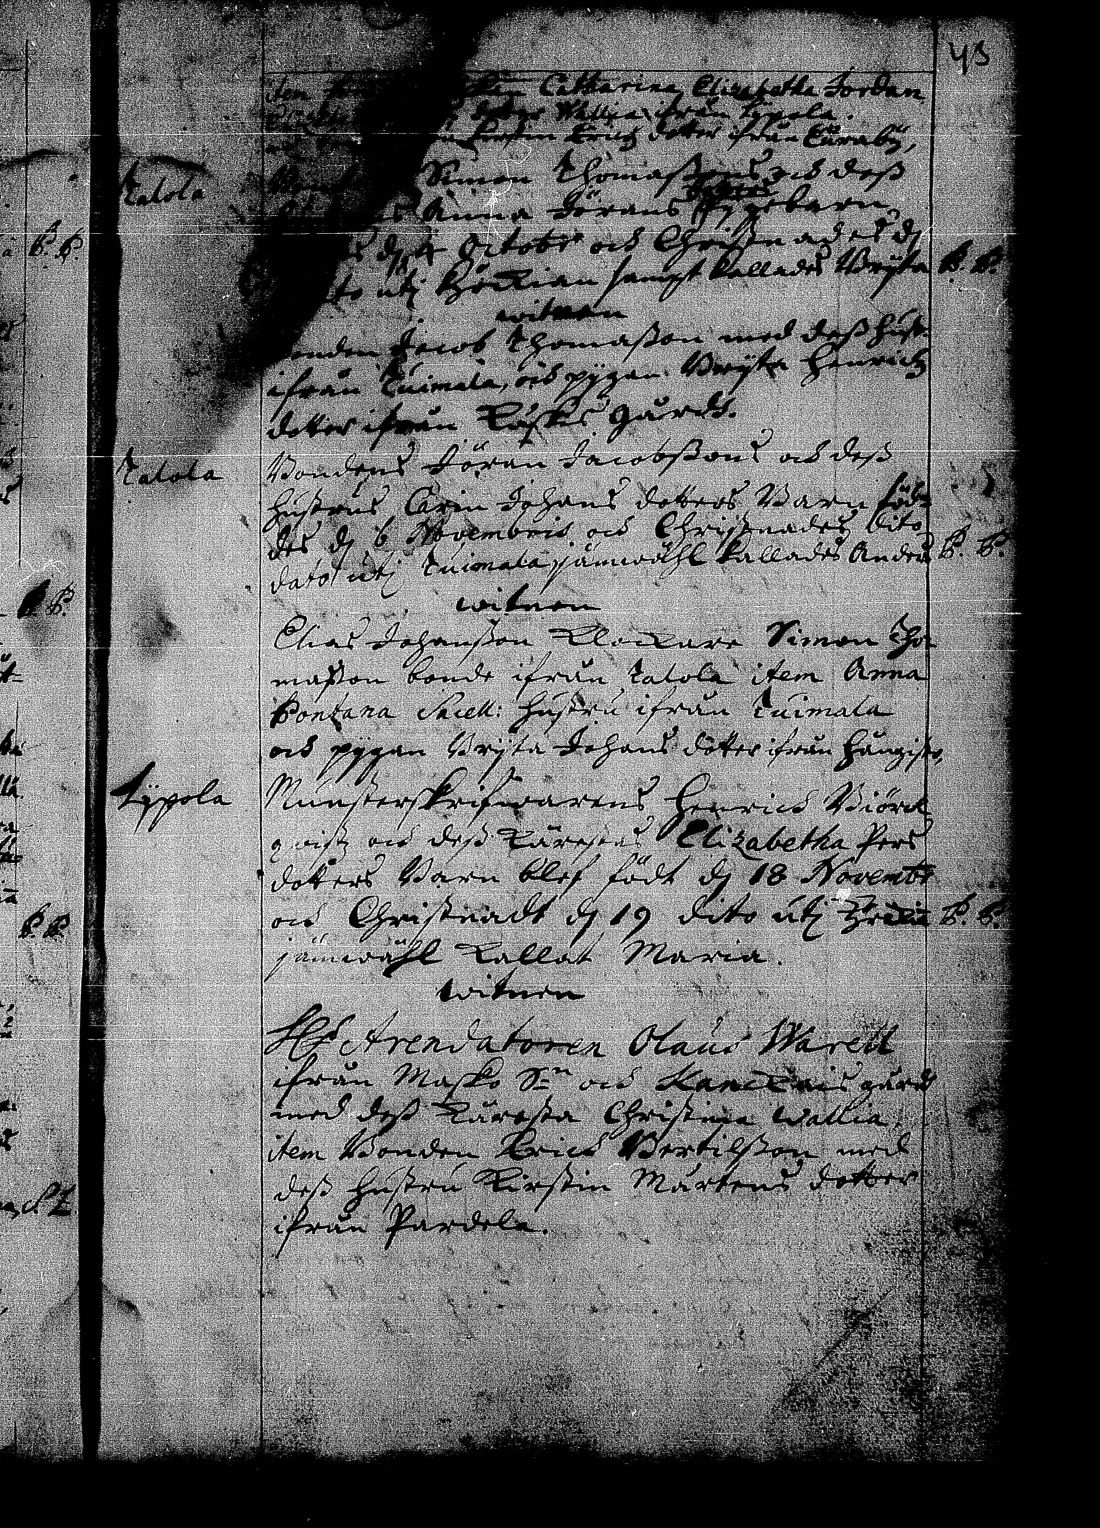 43
item Catharina Elizabetha Jordan
dotter Wallia ifrån Typola.
Erichs dotter ifrån
Talola
Simon Thomaßons och deß
Anna Jörans dotters barn
d 4 Octobr och Christnades d
utj kyrckian sampt kallades Brijta P. P.
witnen
Bonden Jacob Thomaßon med deß hust:
ifrån Tuimala, och pygan Brijta Henrichs
dotter ifrån gårdh.
Talola
Bondens Jöran Jacobßons och deß
hustrus Carin Johans dotters Barn föd-
des d 6 Novembris och Christnades dito
dato utj Tuimala jämwähl kallades Anders P. P.
witnen
Elias Johanßon Klockare Simon Tho-
maßon bonde ifrån Talola item Anna
Pontana Sacell: hustru ifrån Tuimala
och pygan Brijta Johans dotter ifrån
Typola
Munsterskrifwarens Henrich Biörck
qwist och deß Kärestas Elizabetha Pers
dotters Barn blef födt d 18 Novembr
och Christnadt d 19 dito utj P. P.
jämwähl kallat Maria.
witnen
Arendatoren Olaus Warell
ifrån Masko Sn och Kanckais gård
med deß Käresta Christina Wallia,
item Bonden Erich Bertilßon med
deß hustru Kirstin Mårtens dotter
ifrån Pardela.